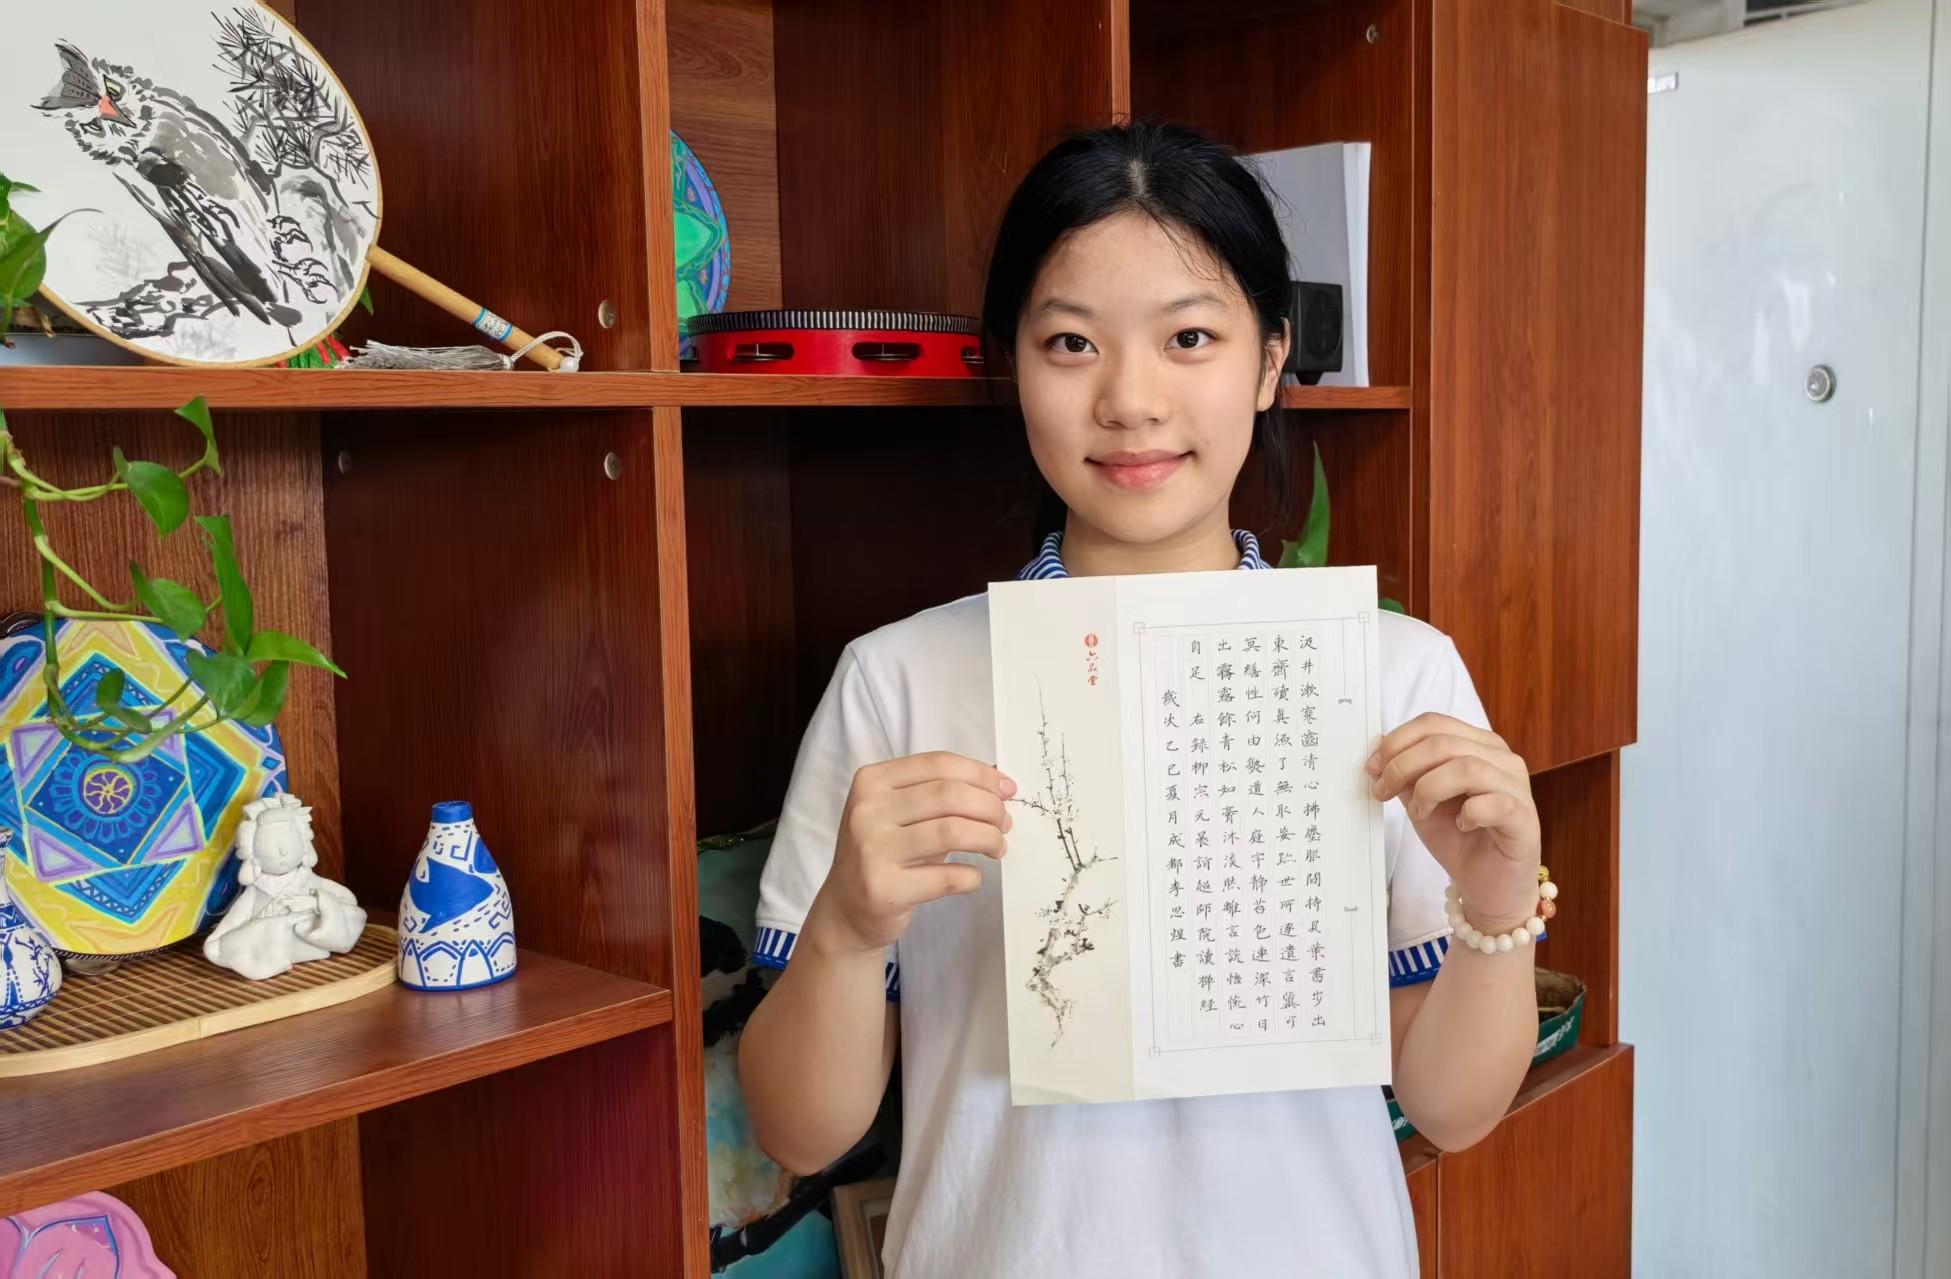 汲井漱寒齒清心拂塵服閒持貝葉書步出
東齋讀真源了無取妄跡世所逐遺言冀可
冥繕性何由熟道人庭宇靜苔色連深竹日
出霧露餘青松如膏沐淡然離言說悟悅心
自足 右録柳宗元晨詣超師院讀禪經
歲次乙巳夏月成都李思煜書
六品堂